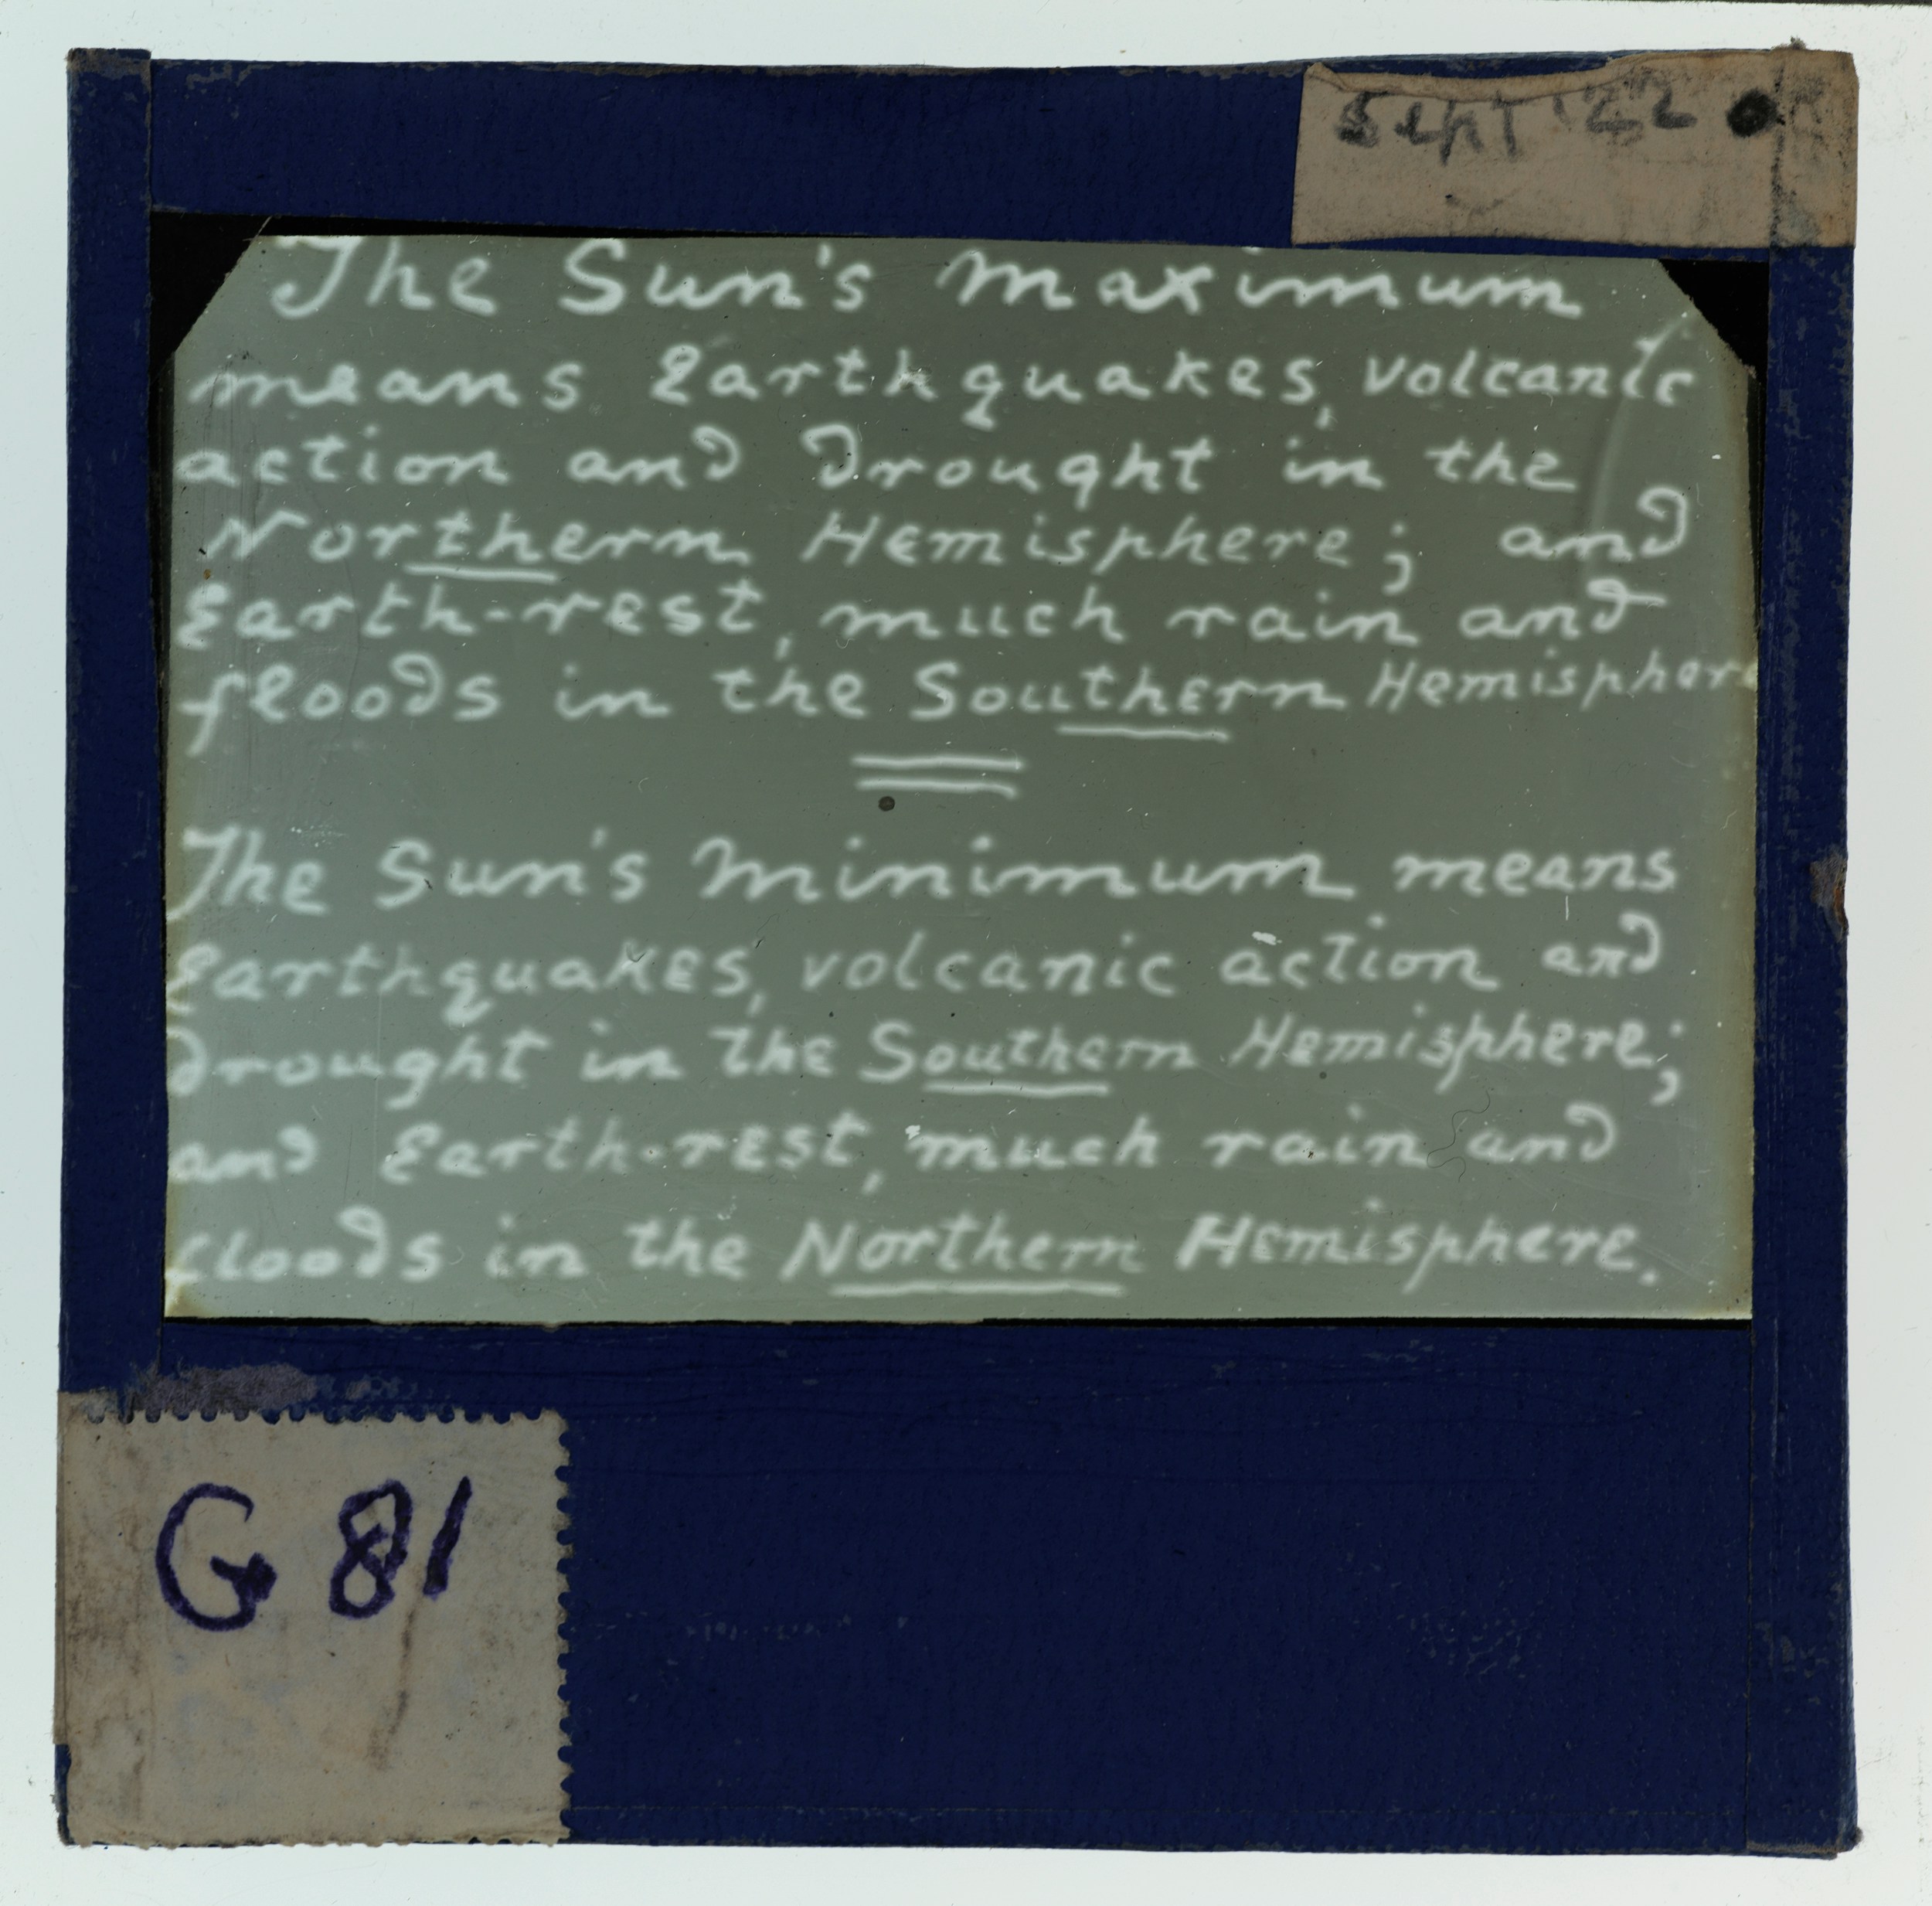 Sept '22
The Sun's Maximum
means Earthquakes, volcanic
action and Drought in the
Northern Hemisphere; and
Earth-rest, much rain and
floods in the Southern Hemisphere
The Sun's Minimum means
Earthquakes, volcanic action and
drought in the Southern Hemisphere;
and Earth-rest, much rain and
floods in the Northern Hemisphere.
G 81